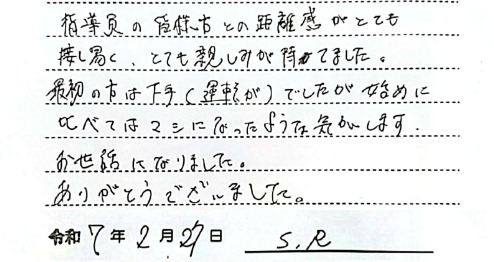 指導員の皆様方との距離感がとても
接し易く、とても親しみが持てました。
最初の方は下手(運転が)でしたが始めに
比べてはマシになったような気がします.
お世話になりました。
ありがとうございました。
令和 7 年 2 月 27 日 S.R